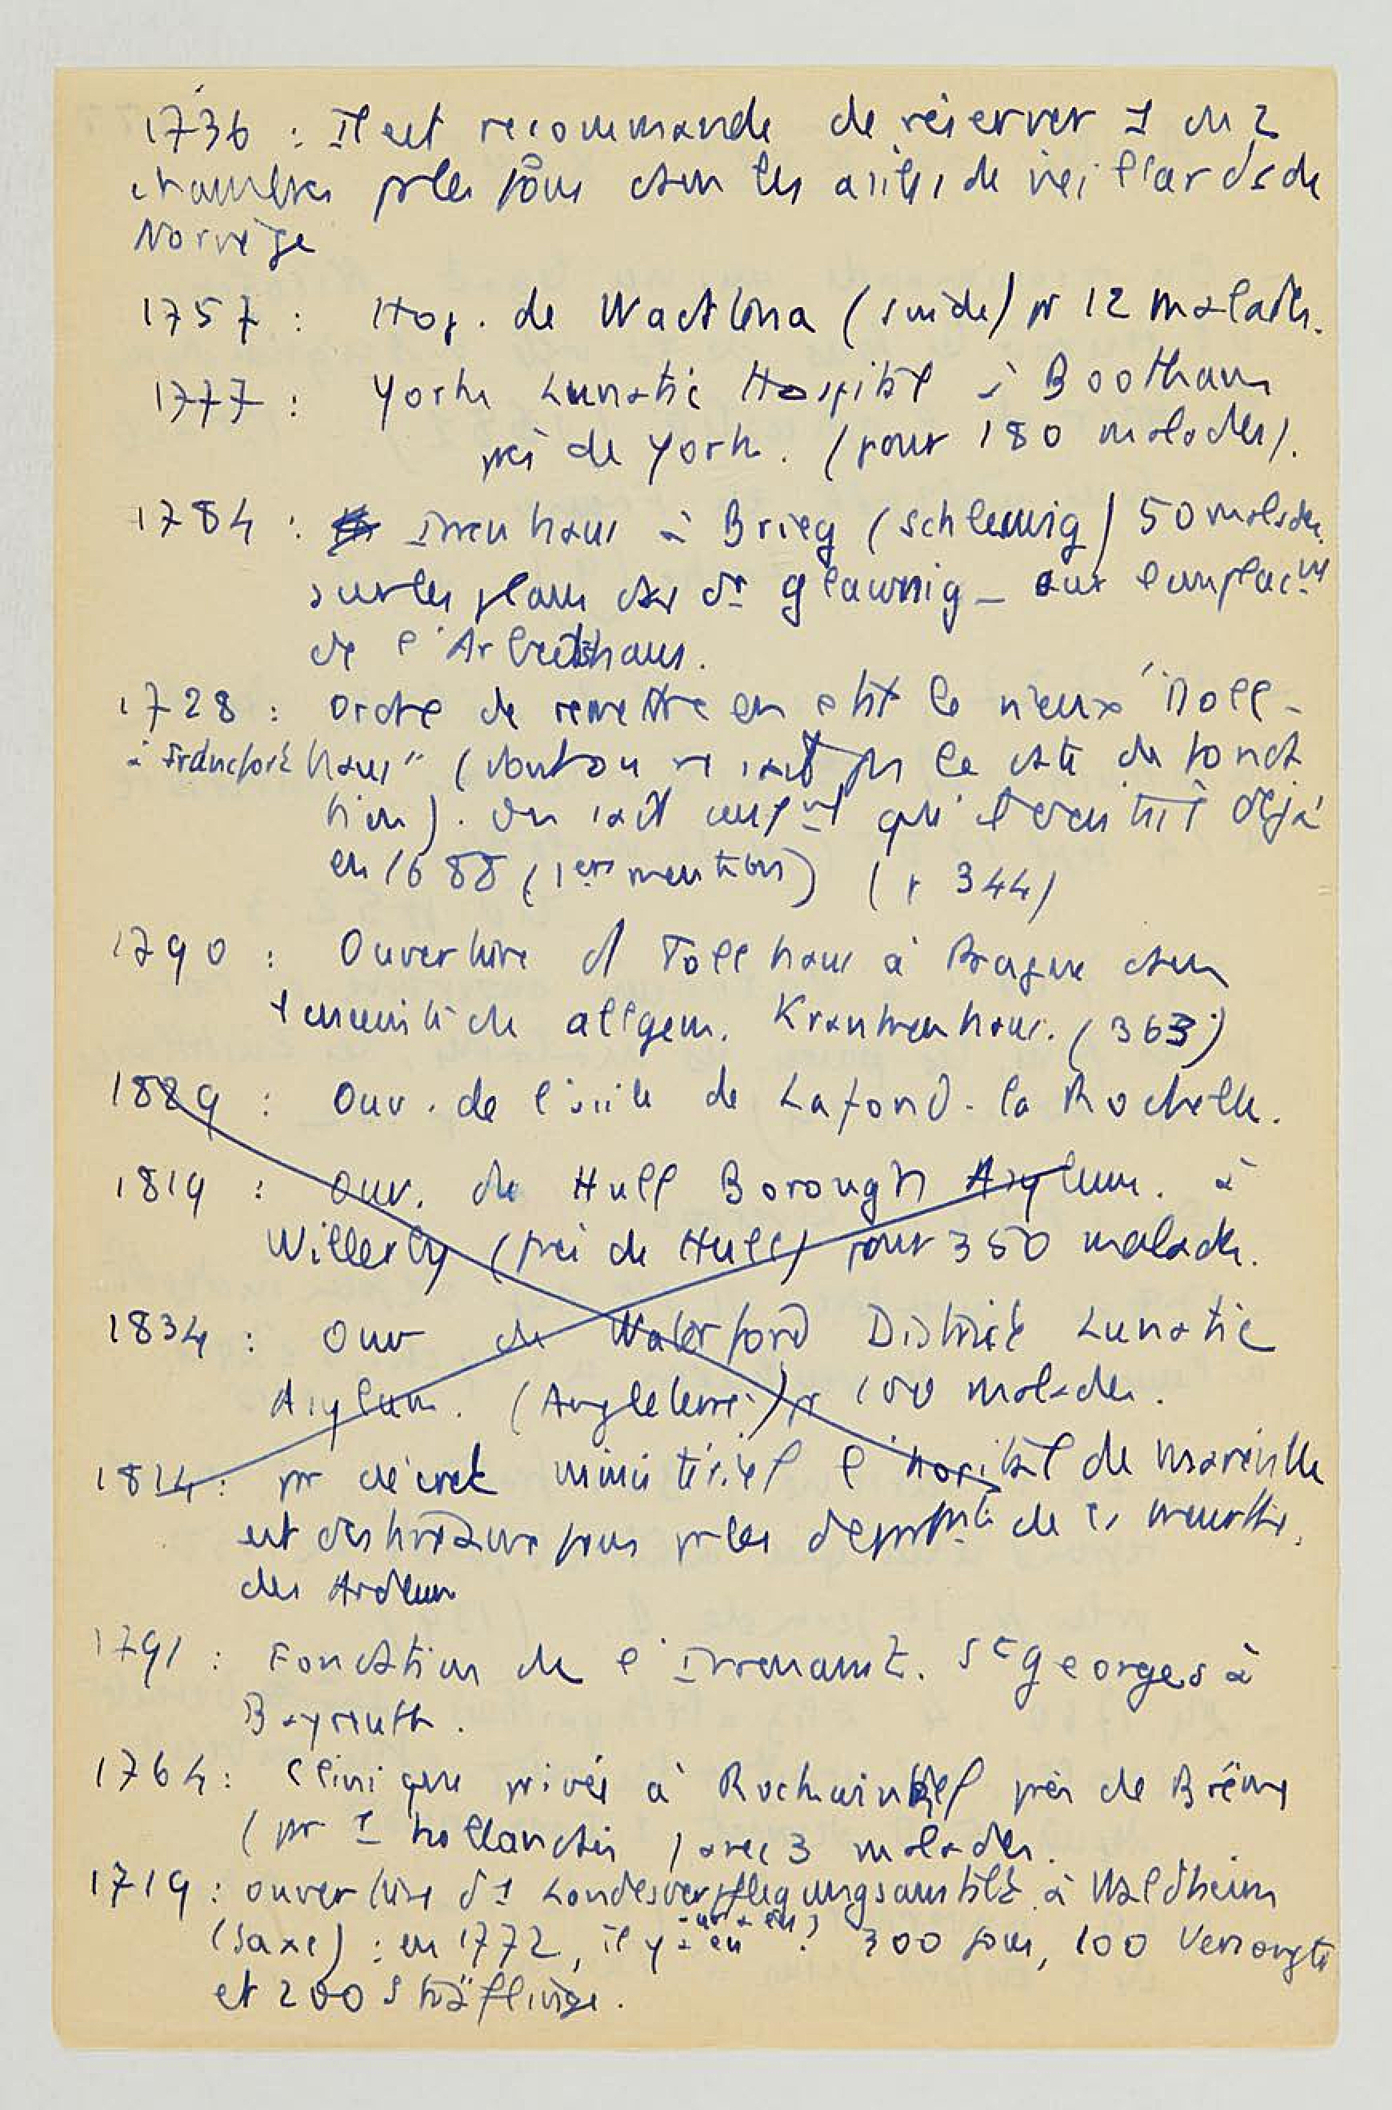 1736 : Il est recommandé de réserver 1 ou 2
chambres pr les fous dans les asiles de vieillards de
Norvège
1757 : Hop. de Wadstena (Suède) pr 12 malades.
1777 : York Lunatic Hospital à Bootham
près de York. (pour 180 malades).
1784 : Irrenhaus à Brieg (Schleswig) 50 malades
sur les plans du Dr Glawnig _ sur l'emplact
de l'Arbeitshaus.
1728 : ordre de remettre en état le vieux "Doll-
à Francfort haus" (dont on ne sait pas la date de fonda
tion). On sait seult qu'il existait déjà
en 1688 (1ère mention) (p 344)
1790 : Ouverture d Tollhaus à Prague dans
allgem. Krankenhaus. (363)
1829 : Ouv. de l'asile de Lafond - la Rochelle.
1819 : Ouv. du Hull Borough Asylum. à
Willerby (près de Hull) pour 350 malades.
1834 : Ouv du Waterford District Lunatic
Asylum. (Angleterre) pr 100 malades.
1814 : pr décret ministériel l'hôpital de Maréville
est destiné aux fous pr les de la Meurthe,
des Ardennes
1791 : Fondation de l'Irrenanst. St Georges à
Bayreuth.
1764 : Clinique privée à Rockwinkel près de Brême
(pr 1 hollandais) avec 3 malades.
1719 : ouverture d 1 Landesverpflegungsanstalt à Waldheim
(Saxe) : en 1772, il y a eu ? 300 fous, 100 Versorgte
et 200 Sträflinge.